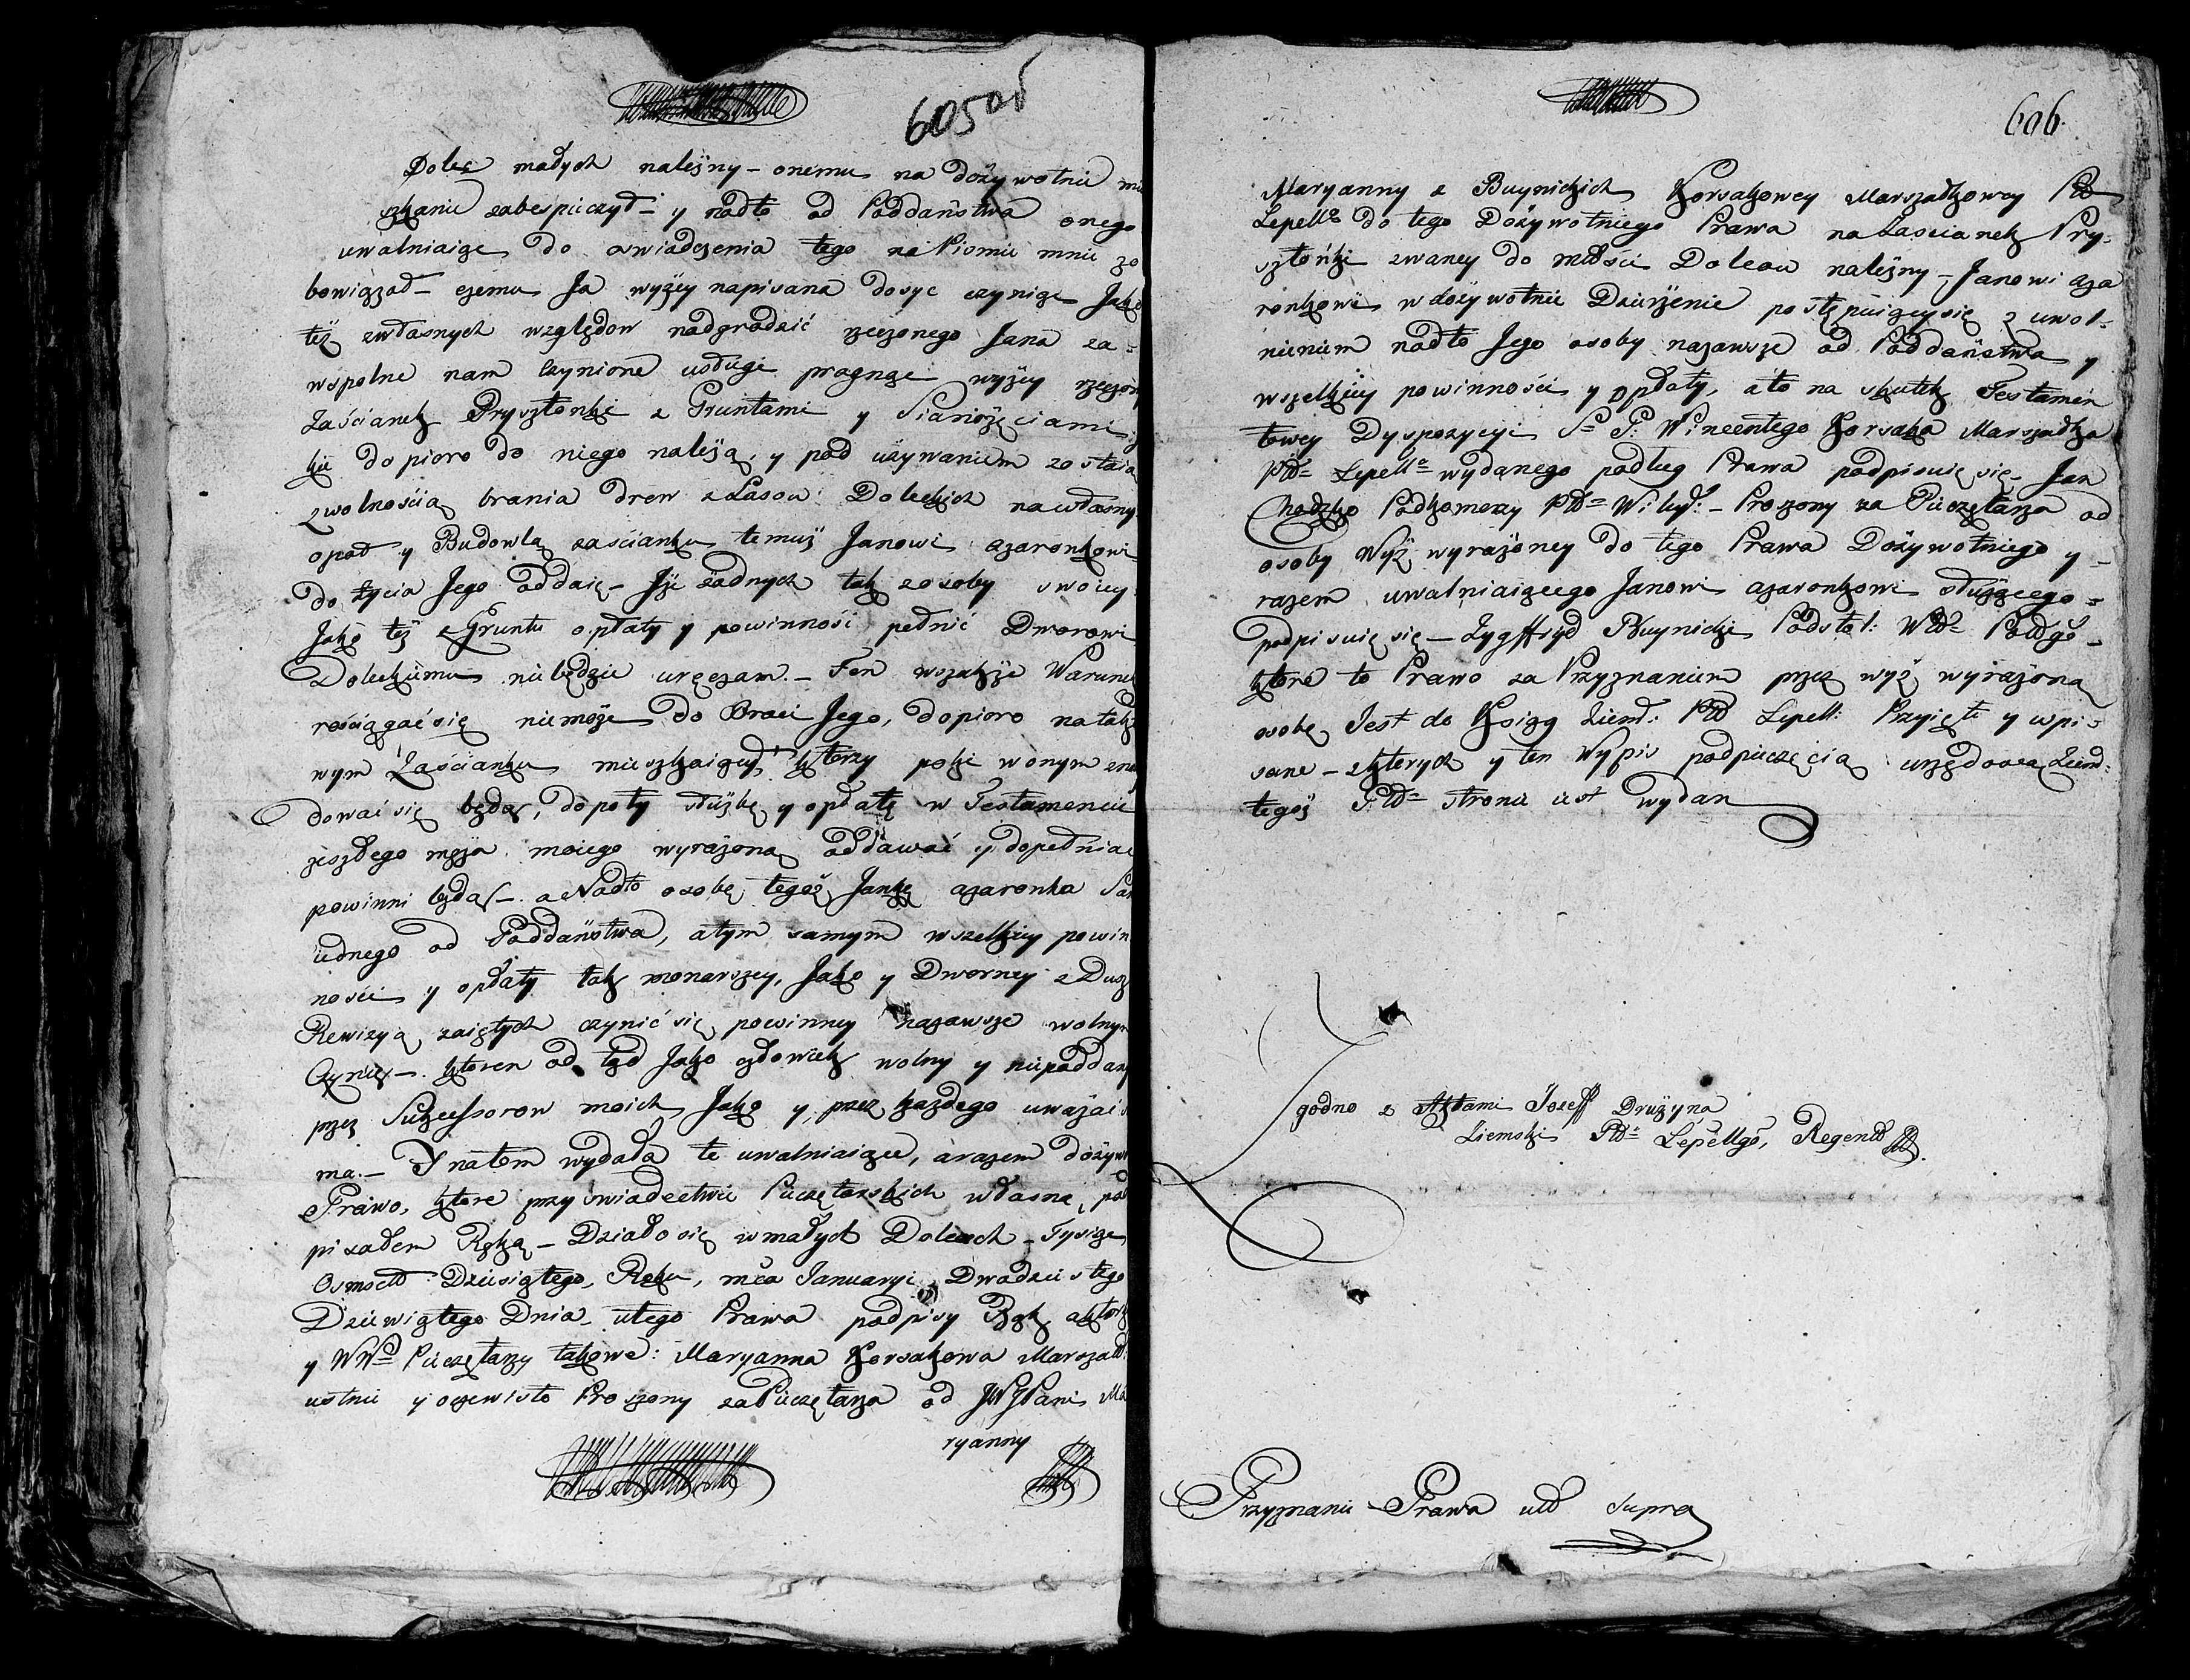 605 об
Dolec małych należny – onemu na dożywotnie mie
szkanie zabespieczył – y nadto od Poddaństwa onego
uwalniaiąc do oswiadczenia tego na Pismie mnie zo
bowiązał – czemu Ja wyżey napisana dosyc czyniąc Jako
też zwłasnych względow nadgrodzić rzeczonego Jana za=
wspolne nam czynione usługi pragnąc wyżey rzeczon
Zaścianek Prysztonki z Gruntami y Sianożęciami
kie dopioro do niego należą, y pod używaniem zostaią
zwolnością brania drew z Lasow Doleckich na własny
opał y Budowlą zaścianku temuż Janowi Azaronkowi
do życia Jego oddaię – Iże żadnych tak zosoby swoiey
Jako też z Gruntu opłaty y powinność pełnić Dworowi
Doleckiemu niebędzie uręczam. – Ten wszakże Warunek
rościągać się niemoże do Braci Jego, dopioro na tako
wym Zaścianku mieszkaiących ktorzy poki wonym znay
dować się będą, dopoty służbę y opłatę w Testamencie
zeszłego męża moiego wyrażoną oddawać y dopełniać
powinni będą –. a Nadto osobę tegoż Janka Azaronka Sam
iednego od Poddaństwa, atym samym wszelkiey powin
ności y opłaty tak monarszey, Jako y Dworney z Dusz
Rewizyą zaiętych czynić się powinney nazawsze wolnym
Czynię –. ktoren od tąd Jako człowiek wolny y niepoddany
przez Sukcessorow moich Jako y przez każdego uważaie
ma. – I natem wydała te uwalniaiące, arazem dożyw
Prawo, ktore przy swiadectwie Pieczętarskich własną pod
pisałem Ręką – Działo się w małych Dolcach – Tysiąc
Osmset Dziesiątego Roku, mca Januaryi Dwadziestego
Dziewiątego Dnia utego Prawa podpisy Rąk aktor
y WW Pieczętarzy takowe: Maryanna Korsakowa Marszałk:
ustnie y oczewisto Proszony za Pieczętarza od JW JPani Ma
ryanny
606.
Maryanny z Buynickich Korsakowey Marszałkowey Ptu
Lepell do tego Dożywotniego Prawa na Zascianek Pry=
sztońki zwaney do młości Dolcow należny – Janowi Aza
ronkowi w dożywotnie Dzierżenie postępuiącysię z uwol=
nieniem nadto Jego osoby nazawsze od Poddaństwa y
wszelkiey powinności y opłaty, ato na skutek Testamen
towey Dyspozycyi S: P: Wincentego Korsaka Marszałka
Ptu Lepell wydanego podług Prawa podpisuię się – Jan
Chodzko Podkomorzy Ptu Wileys: – Proszony za Pieczętarza od
osoby Wyż wyrażoney do tego Prawa Dożywotniego y –
razem uwalniaiącego Janowi Azaronkowi służącego =
podpisuię się – Zygffryd Buynicki Podstol: Wdz Połdgo –
ktore to Prawo za Przyznaniem przez wyż wyrażoną
osobę Jest do Xsiąg Ziemd: Ptu Lepell: Przyięte y wpi=
sane – zktorych y ten Wypis podpieczęcią urzędową Ziemd:
tegoż Ptu stronie iest wydan
Zgodno z Aktami Jozeff Drużyna
Ziemski Ptu Lepellgo, Regent
Przyznanie Prawa utt Supra